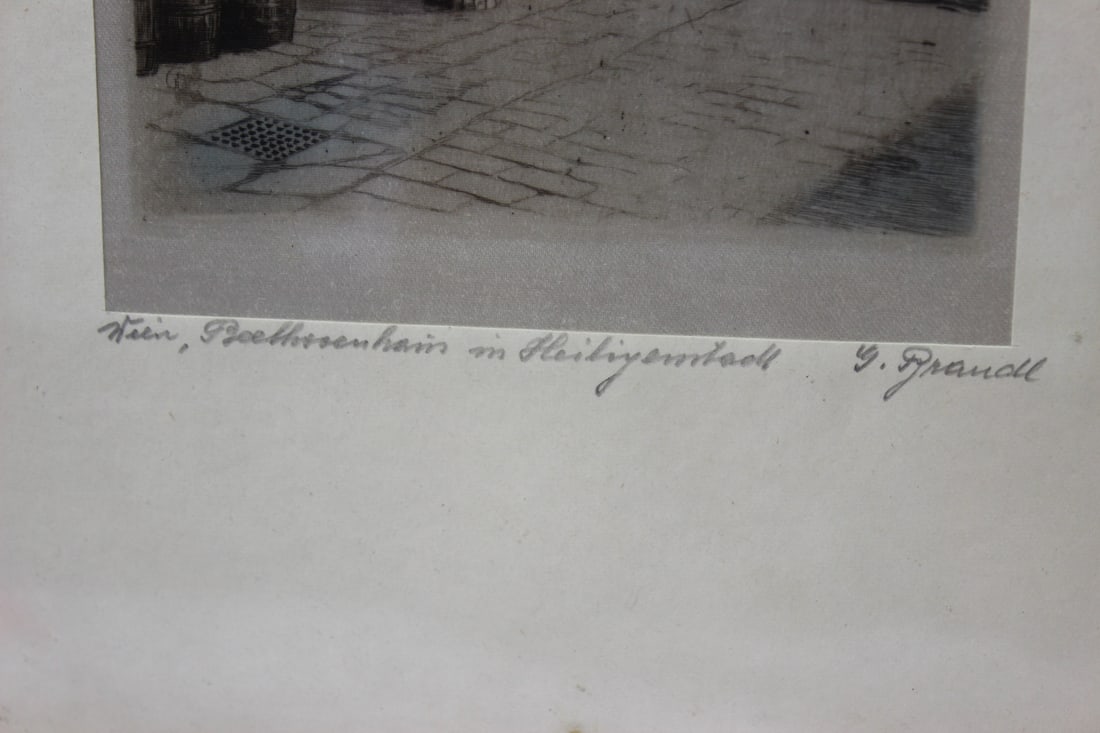 Wien, Beethovenhaus in Heiligenstadt G. Brandl